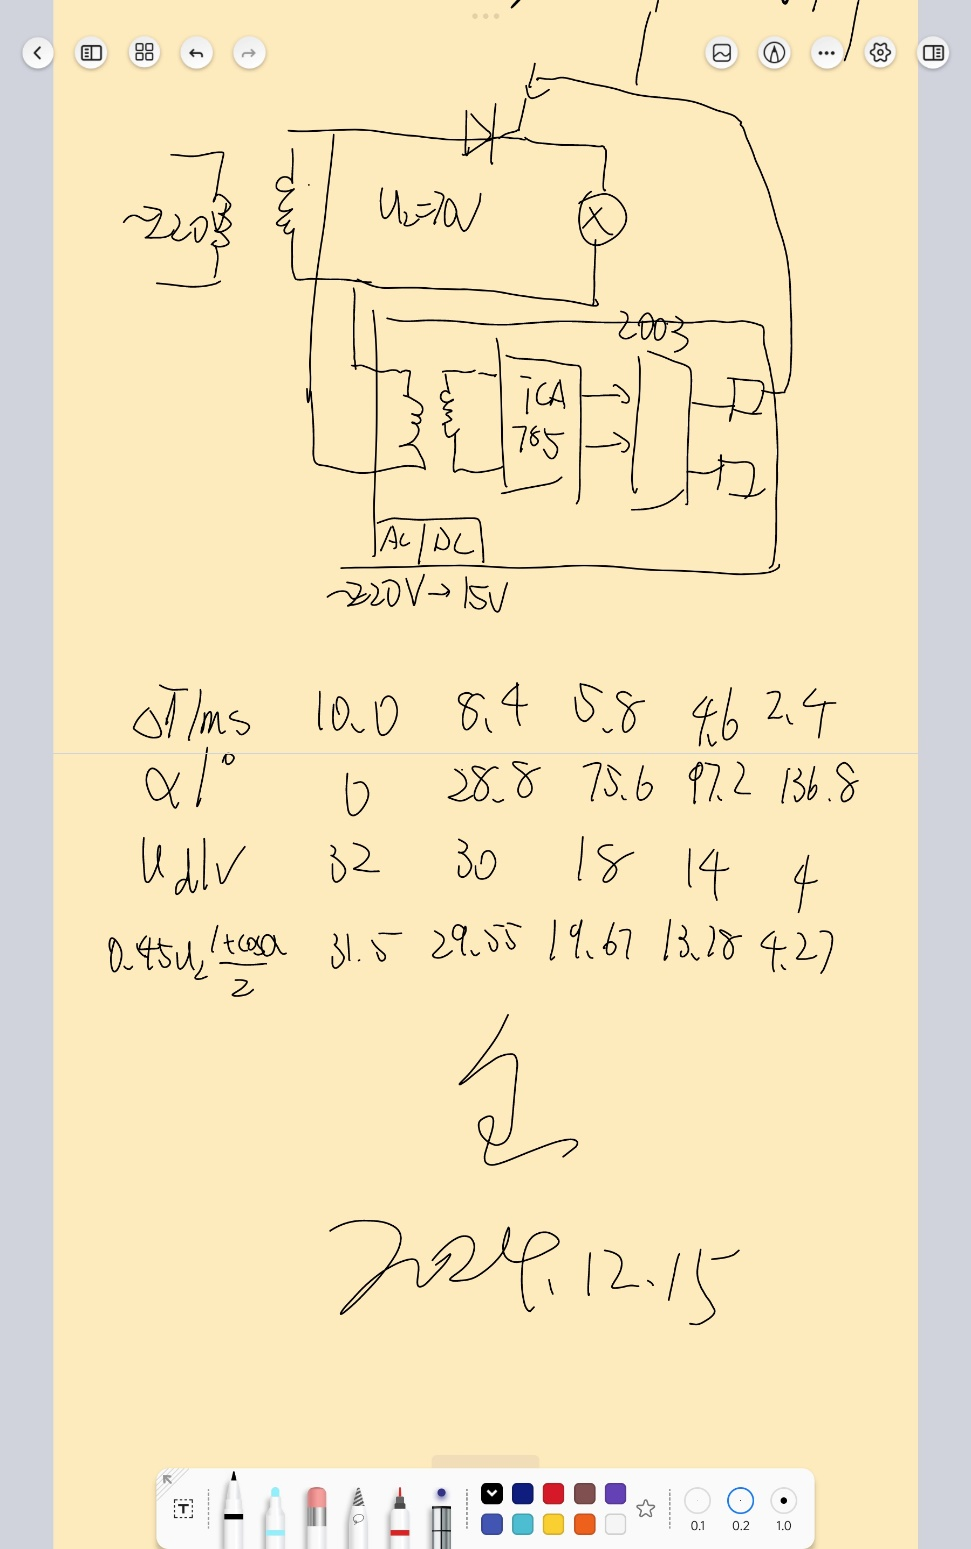 ~220V
U₂=70V
2003
TCA
785
AC/DC
~220V→15V
ΔT/ms 10.0 8.4 5.8 4.6 2.4
α/° 0 28.8 75.6 97.2 136.8
Ud/V 32 30 18 14 4
0.45U₂ (1+cosα)/2 31.5 29.55 19.67 13.78 4.27
2024.12.15
0.1 0.2 1.0